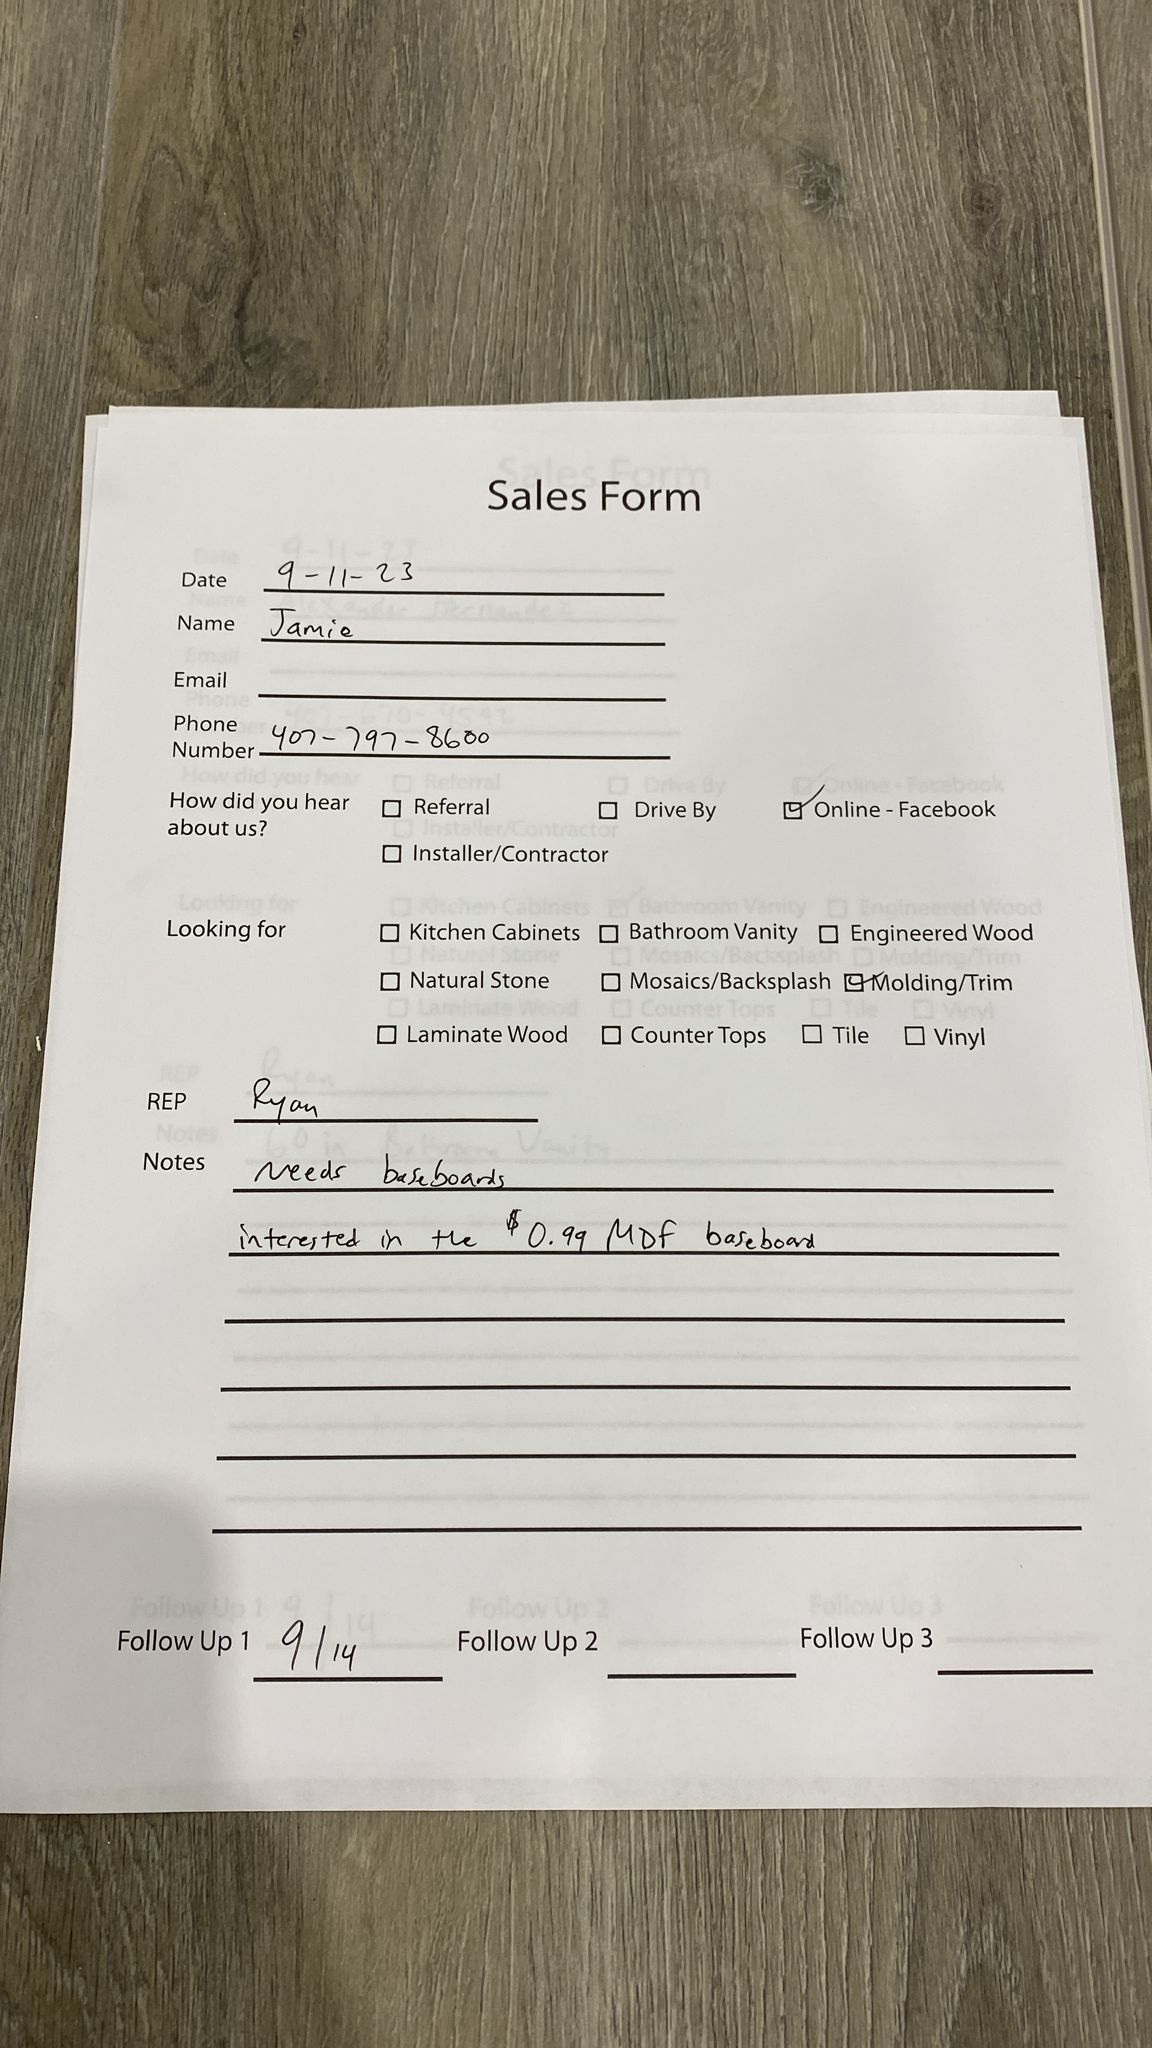 Sales Form
Date 9-11-23
Name Jamie
Email
Phone
Number 407-797-8600
How did you hear about us? ☐ Referral ☐ Drive By ☑ Online - Facebook
☐ Installer/Contractor
Looking for ☐ Kitchen Cabinets ☐ Bathroom Vanity ☐ Engineered Wood
☐ Natural Stone ☐ Mosaics/Backsplash ☑ Molding/Trim
☐ Laminate Wood ☐ Counter Tops ☐ Tile ☐ Vinyl
REP Ryan
Notes Needs baseboards
interested in the $0.99 MDF baseboard
Follow Up 1 9/14 Follow Up 2 Follow Up 3